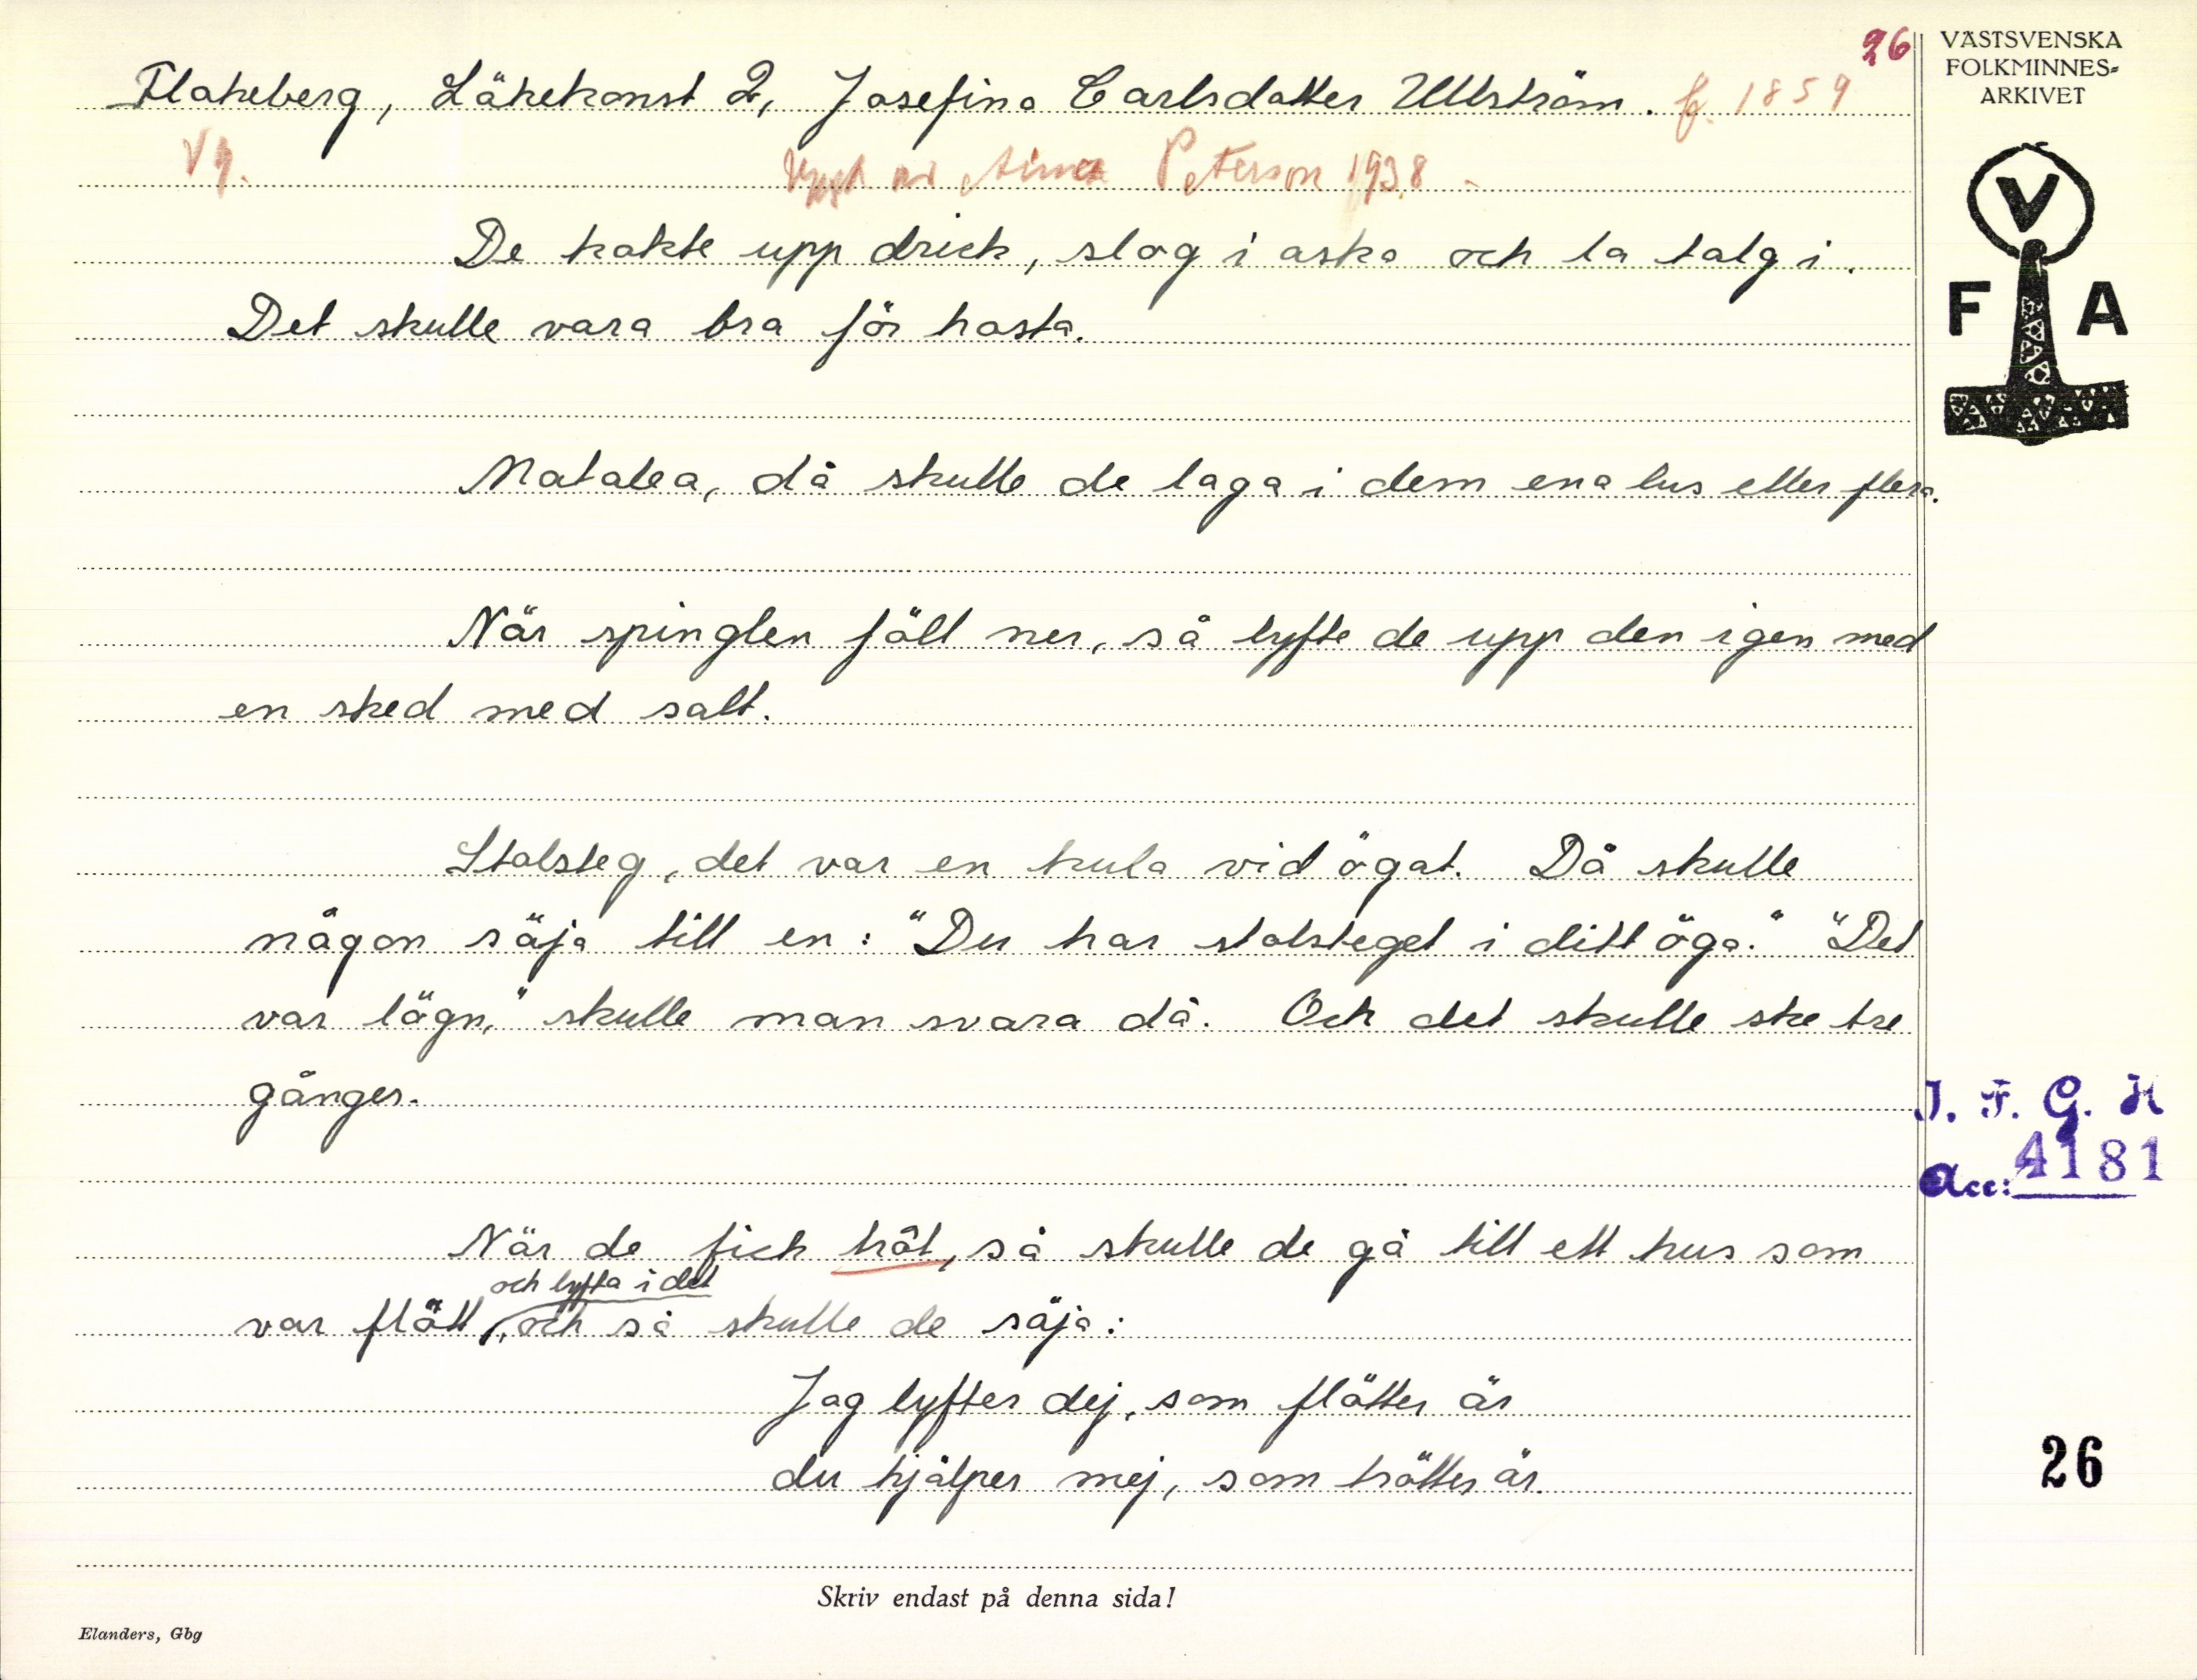 26
VÄSTSVENSKA
FOLKMINNES-
ARKIVET
Flakeberg, Läkekonst 2, Josefina Carlsdotter Ullström. f. 1859
Vg.
Uppt av Anna Peterson 1938
V
F A
De kokte upp drick, slog i aska och la talg i.
Det skulle vara bra för hosta.
Matalea, då skulle de laga i dem ena lus eller flera.
När spinglen föll ner, så lyfte de upp den igen med
en sked med salt.
Stalsteg, det var en kula vid ögat. Då skulle
någon säja till en: "Du har stalsteget i ditt öga." "Det
var lögn," skulle man svara då. Och det skulle ske tre
gånger.
I. F. G. H
Acc: 4181
När de fick tröt, så skulle de gå till ett hus som
och lyfta i det
var flött, och så skulle de säja:
Jag lyfter dej, som flötter är
du hjälper mej, som trötter är.
26
Skriv endast på denna sida!
Elanders, Gbg